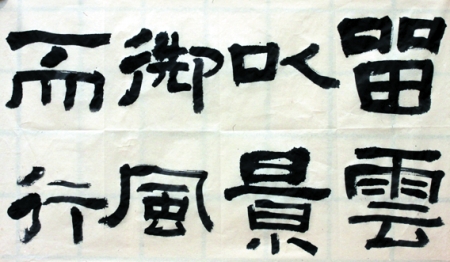 留雲
以景
御風
而行